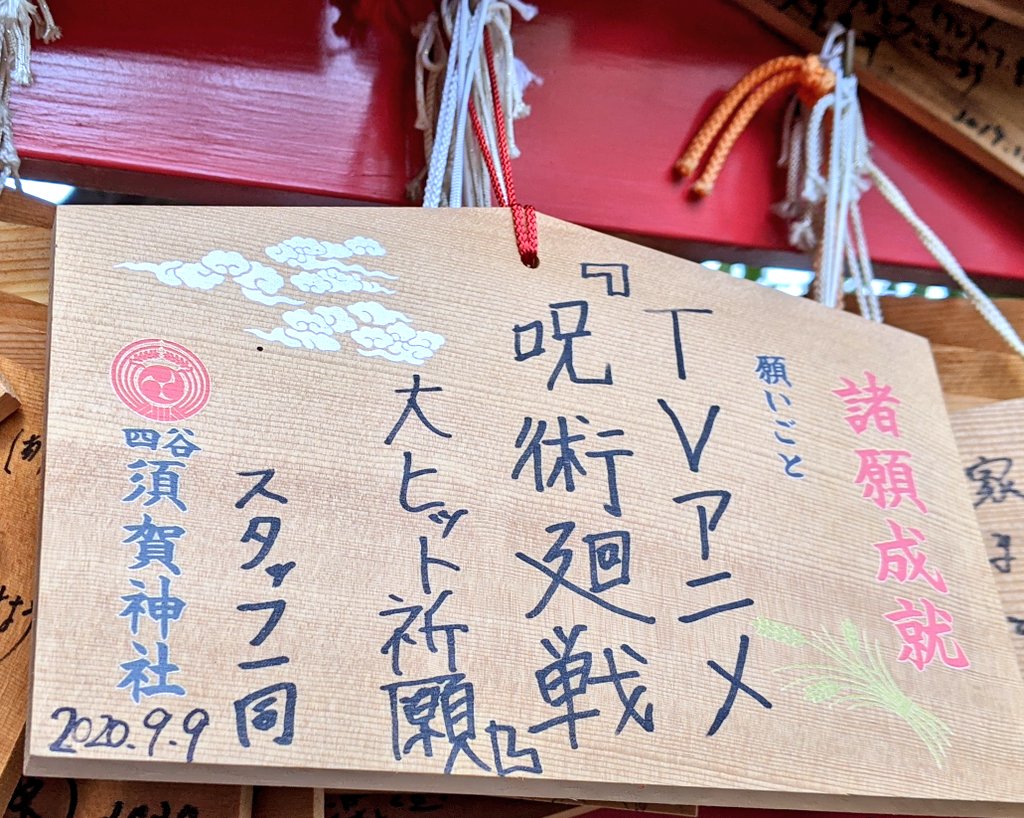 諸願成就
願いごと
TVアニメ
『呪術廻戦』
大ヒット祈願
スタッフ一同
四谷
須賀神社
2020.9.9